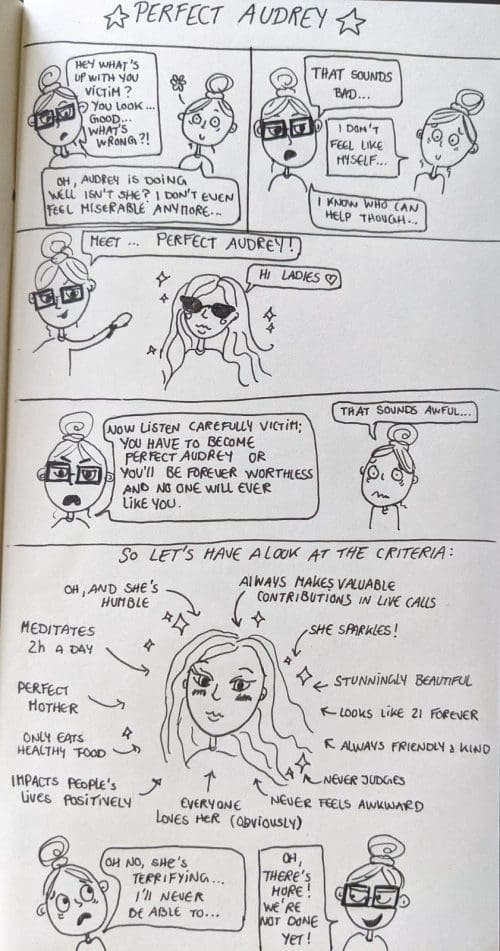 PERFECT AUDREY
HEY WHAT'S
UP WITH YOU
VICTIM?
YOU LOOK...
GOOD...
WHAT'S
WRONG?!
OH, AUDREY IS DOING
WELL ISN'T SHE? I DON'T EVEN
FEEL MISERABLE ANYMORE...
THAT SOUNDS
BAD...
I DON'T
FEEL LIKE
MYSELF...
I KNOW WHO CAN
HELP THOUGH...
MEET ... PERFECT AUDREY!
HI LADIES ♡
NOW LISTEN CAREFULLY VICTIM;
YOU HAVE TO BECOME
PERFECT AUDREY OR
YOU'LL BE FOREVER WORTHLESS
AND NO ONE WILL EVER
LIKE YOU.
THAT SOUNDS AWFUL...
SO LET'S HAVE A LOOK AT THE CRITERIA:
OH, AND SHE'S
HUMBLE
ALWAYS MAKES VALUABLE
CONTRIBUTIONS IN LIVE CALLS
MEDITATES
2h A DAY
SHE SPARKLES!
STUNNINGLY BEAUTIFUL
PERFECT
MOTHER
LOOKS LIKE 21 FOREVER
ONLY EATS
HEALTHY FOOD
ALWAYS FRIENDLY & KIND
IMPACTS PEOPLE'S
LIVES POSITIVELY
NEVER JUDGES
EVERYONE
LOVES HER (OBVIOUSLY)
NEVER FEELS AWKWARD
OH NO, SHE'S
TERRIFYING...
I'LL NEVER
BE ABLE TO...
OH,
THERE'S
MORE!
WE'RE
NOT DONE
YET!